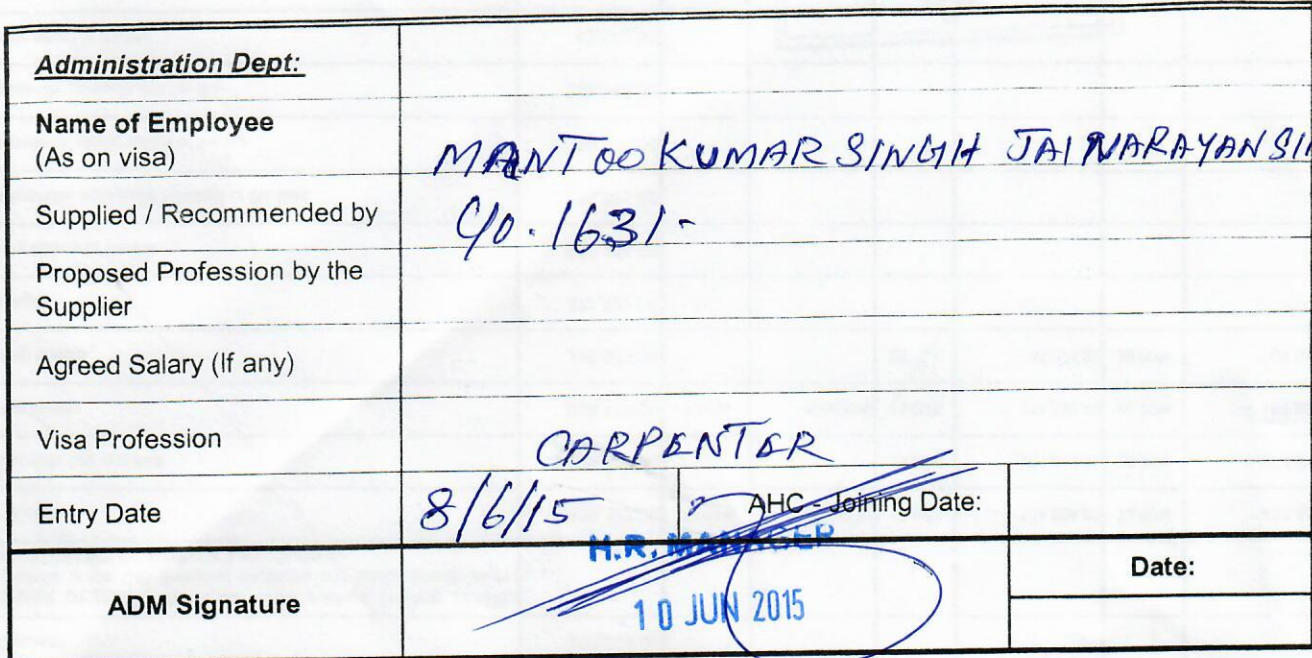 Administration Dept:
Name of Employee
(As on visa)
MANTOO KUMAR SINGH JAINARAYAN SIN
Supplied / Recommended by
C/o. 1631-
Proposed Profession by the
Supplier
Agreed Salary (If any)
Visa Profession
CARPENTER
Entry Date
8/6/15
AHC - Joining Date:
H.R. MANAGER
Date:
ADM Signature
10 JUN 2015